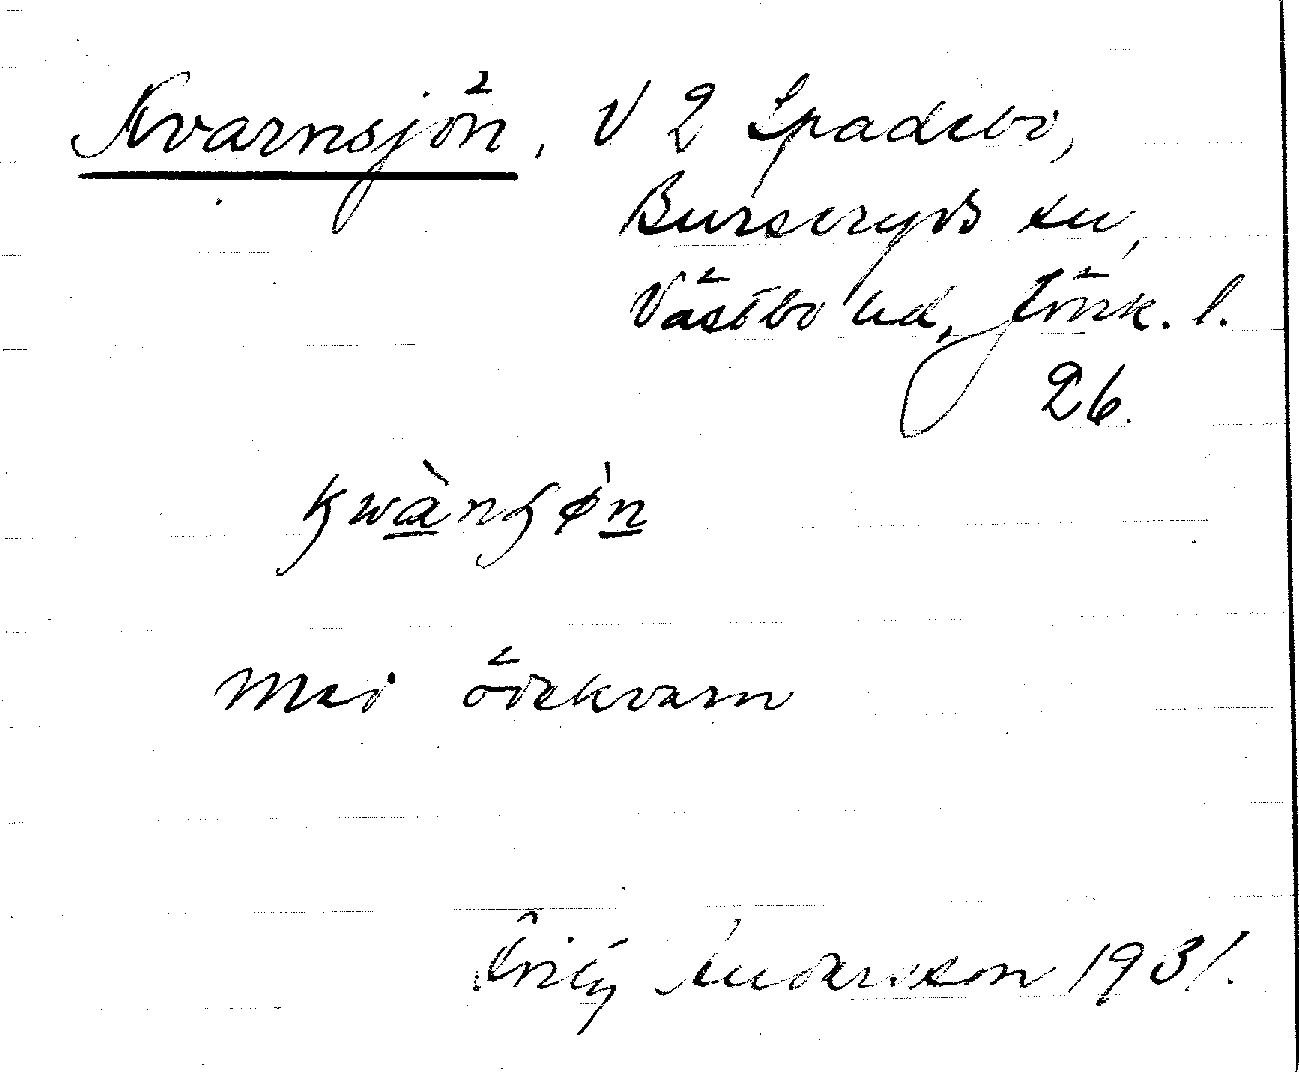 Kvarnsjön, V 2 Spadebo,
Burseryds sn,
Västbo hd, Jönk. l.
26.
kwàngǿn
Med ödekvarn
Fritz Andersson 1931.